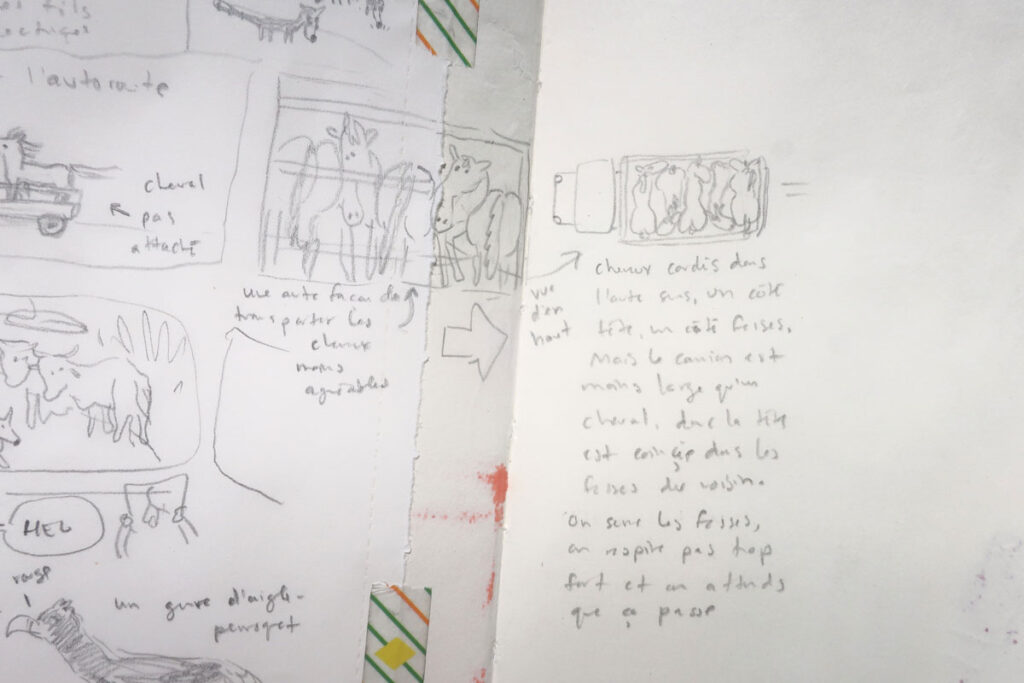 fils
l'autoroute
cheval
pas
attaché
une autre façon de
transporter les
chevaux
moins
agréables
MEU
rouge
un genre d'aigle-
perroquet
vue
d'en
haut
chevaux cordés dans
l'autre sens, un côté
tête, un côté fesses.
Mais le camion est
moins large qu'un
cheval, donc la tête
est coinçée dans les
fesses du voisin.
On serre les fesses,
on respire pas trop
fort et on attends
que ça passe